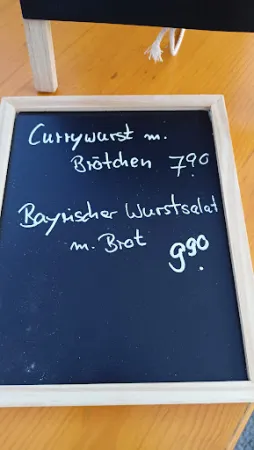 Currywurst m.
Brötchen 7.90
Bayrischer Wurstsalat
m. Brot 9.90